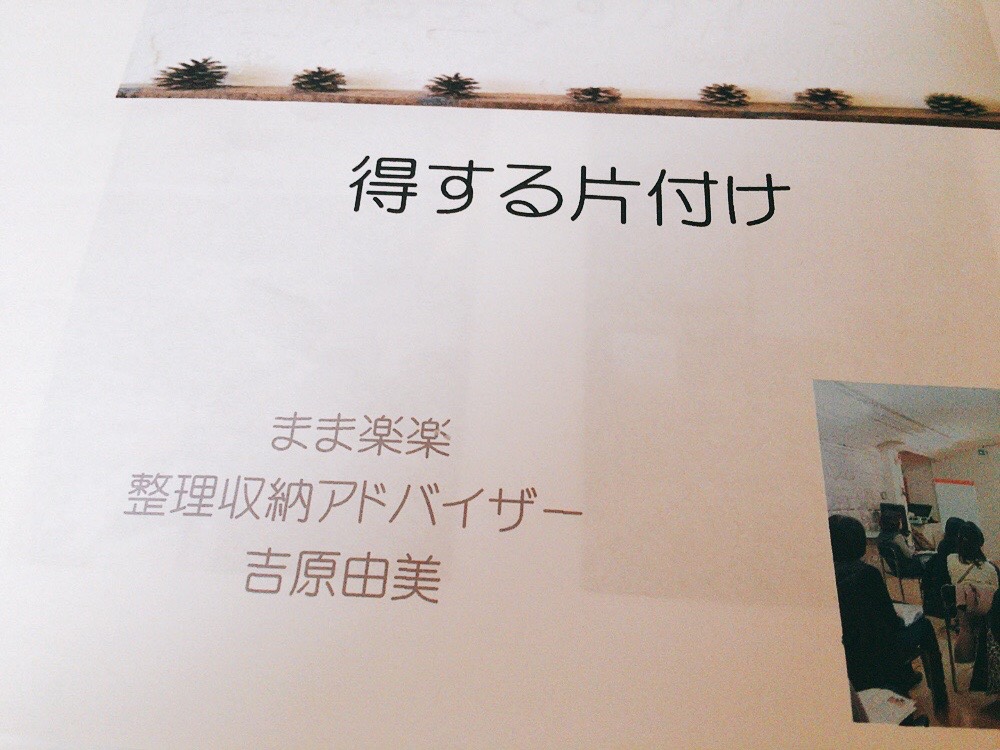 得する片付け
まま楽楽
整理収納アドバイザー
吉原由美